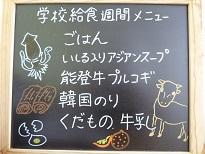 学校給食週間メニュー
ごはん
いしる入りアジアンスープ
能登牛プルコギ
韓国のり
くだもの 牛乳